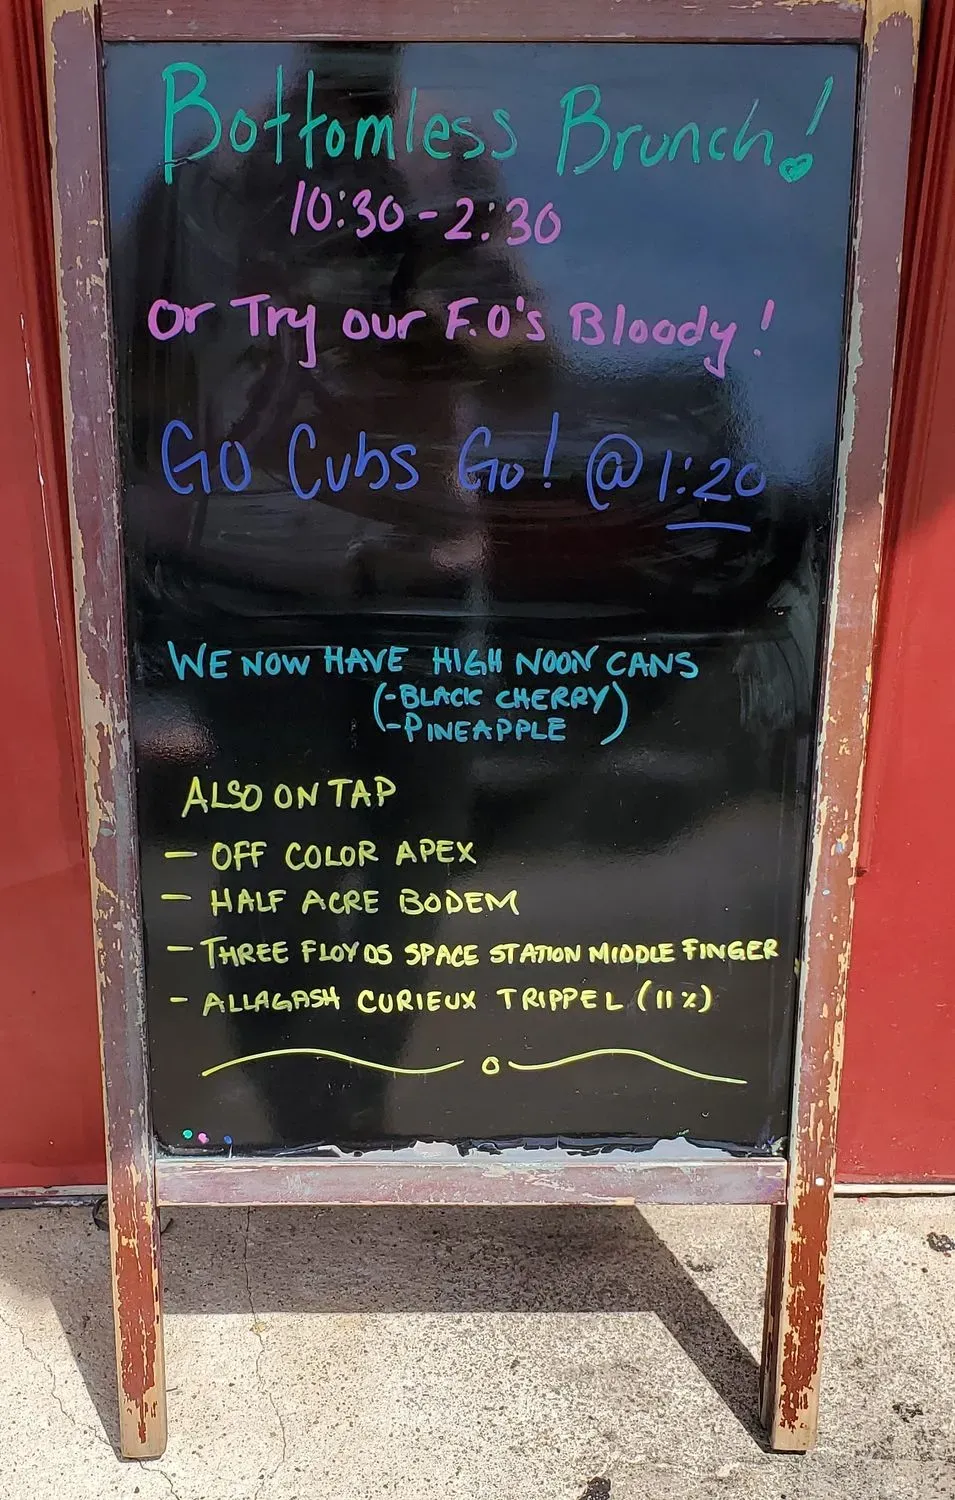 Bottomless Brunch!
10:30-2:30
Or Try our F.O's Bloody!
Go Cubs Go! @ 1:20
WE NOW HAVE HIGH NOON CANS
(-BLACK CHERRY)
-PINEAPPLE
ALSO ON TAP
- OFF COLOR APEX
- HALF ACRE BODEM
- THREE FLOYDS SPACE STATION MIDDLE FINGER
- ALLAGASH CURIEUX TRIPPEL (11%)